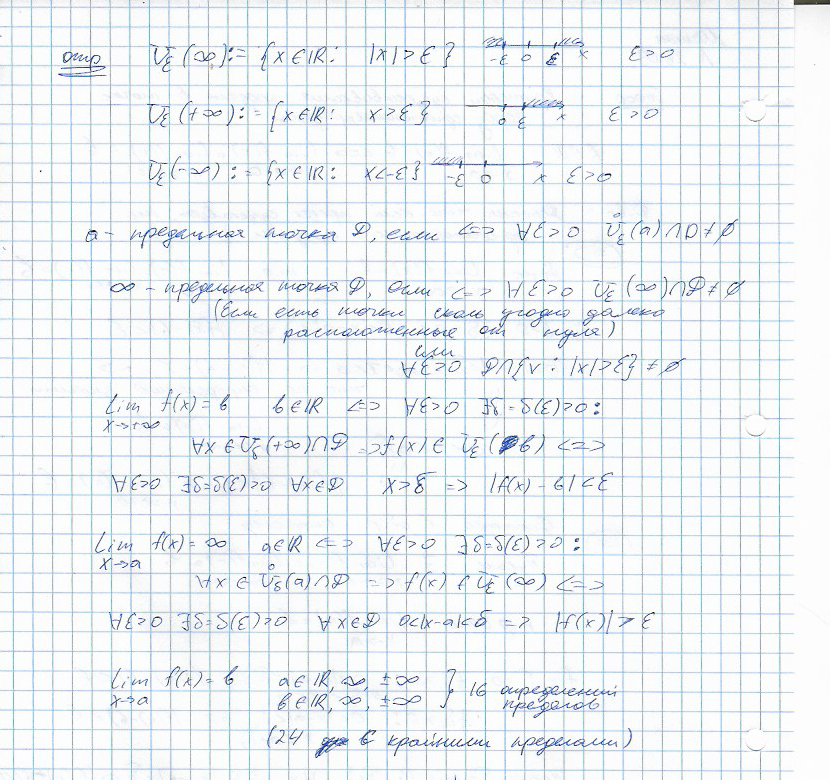 опр U_ε(∞) := {x∈ℝ: |x|>ε} -ε 0 ε x ε>0
U_ε(+∞) := {x∈ℝ: x>ε} 0 ε x ε>0
U_ε(-∞) := {x∈ℝ: x<-ε} -ε 0 x ε>0
a - предельная точка D, если <=> ∀ε>0 U̇_ε(a)∩D≠∅
∞ - предельная точка D, если <=> ∀ε>0 U_ε(∞)∩D≠∅
(Если есть точки сколь угодно далеко
расположенные от нуля)
или
∀ε>0 D∩{x: |x|>ε}≠∅
Lim f(x)=b b∈ℝ <=> ∀ε>0 ∃δ=δ(ε)>0:
x→+∞
∀x∈U_δ(+∞)∩D => f(x)∈U_ε(b) <=>
∀ε>0 ∃δ=δ(ε)>0 ∀x∈D x>δ => |f(x)-b|<ε
Lim f(x)=∞ a∈ℝ <=> ∀ε>0 ∃δ=δ(ε)>0:
x→a
∀x∈U̇_δ(a)∩D => f(x)∈U_ε(∞) <=>
∀ε>0 ∃δ=δ(ε)>0 ∀x∈D 0<|x-a|<δ => |f(x)|>ε
Lim f(x)=b a∈ℝ, ∞, ±∞ } 16 определений
x→a b∈ℝ, ∞, ±∞ пределов
(24 с крайними пределами)